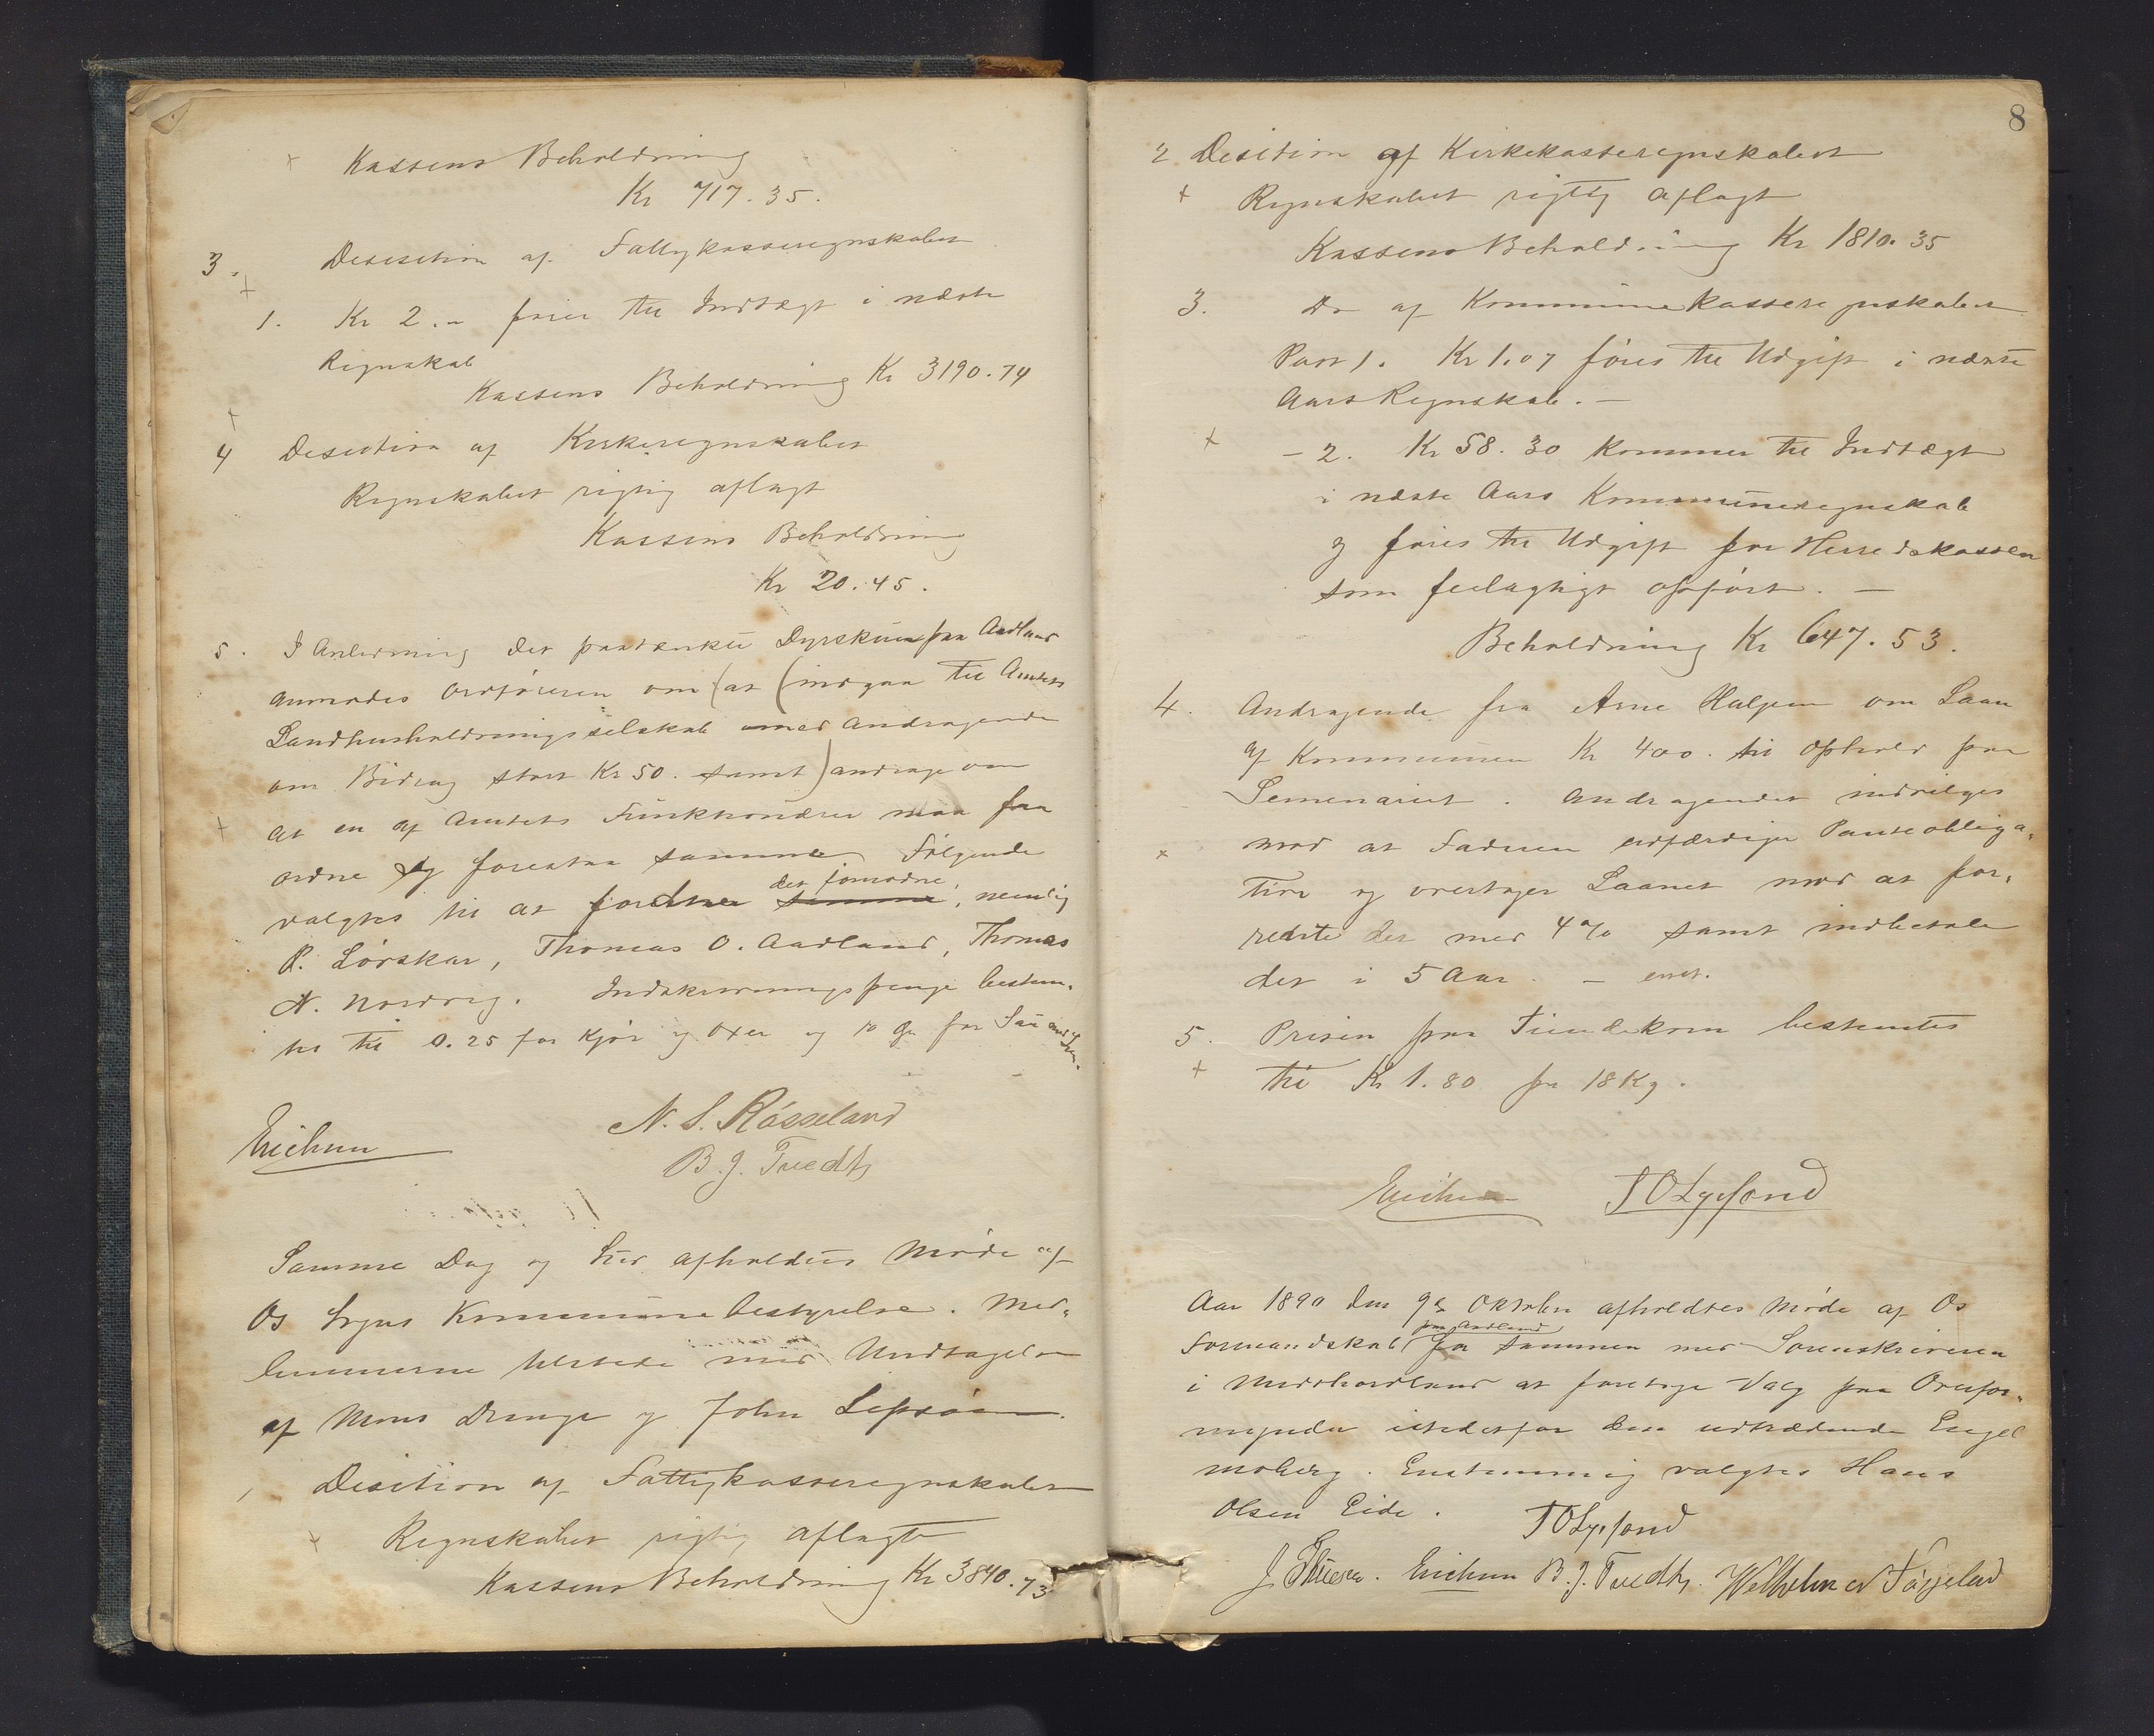 Kassens Beholdning
Kr 717.35.
3. Desisition af Fattigkasseregnskabet
1. Kr 2.- føres til Indtægt i næste
Regnskab
Kassens Beholdning Kr 3190.74
4 Desistion af Kirkeregnskabet
Regnskabet rigtig aflagt
Kassens Beholdning
Kr 20.45.
5. I Anledning det paatænkte Dyrskue paa Aadland
anmodes Ordføreren om (at (indgaa til Amtets
Landhusholdningsselskab med Andragende
om Bidrag stort Kr 50. samt) andrage om
at en af Amtets Funktionærer maa faa
ordne og forestaa samme. Følgende
valgtes til at det fornødne, nemlig
P. Lørskar, Thomas O. Aadland, Thomas
N. Nordvig. Indskrivningspenge bestem-
tes til 0.25 for Kjør og Oxer og 10 Øre for
Erichsen N. S. Røsseland
B. J. Tvedt
Samme Dag og Sted afholdtes Møde af
Os Sogns Kommunebestyrelse. Med-
lemmerne tilstede med Undtagelse
af Mons Drange og John Lepsøen.
1 Desition af Fattigkasseregnskabet
Regnskabet rigtig aflagt
Kassens Beholdning Kr 3840.73
8
2 Desition af Kirkekasseregnskabet
Regnskabet rigtig aflagt
Kassens Beholdning Kr 1810.35
3. Do af Kommunekasseregnskabet
Post 1. Kr 1.07 føres til Udgift i næste
Aars Regnskab. –
– 2. Kr 58.30 kommer til Indtægt
i næste Aars Kommuneregnskab
og føres til Udgift for Herredskassen
som feilagtigt opført. –
Beholdning Kr 647.53.
4. Andragende fra Arne Haljem om Laan
af Kommunen Kr 400. til Ophold paa
Semenariet. Andragendet indvilges
mod at Faderen udfærdiger Panteobliga-
tion og overtager Laanet mod at for-
rente det med 4% samt indbetale
det i 5 Aar. – enst.
5. Prisen paa Tiendekorn bestemtes
til Kr 1.80 pr 18 Kg.
Erichsen T O Lysfond
Aar 1890 den 9de Oktober afholdtes Møde af Os
Formandskab paa Aadland for sammen med Sorenskriveren
i Midthordland at foretage Valg paa Overfor-
mynder istedetfor den udtrædende Engel
Moberg. Enstemmig valgtes Hans
Olsen Eide. T O Lysfond
J Thuesen. Erichsen B. J. Tvedt.